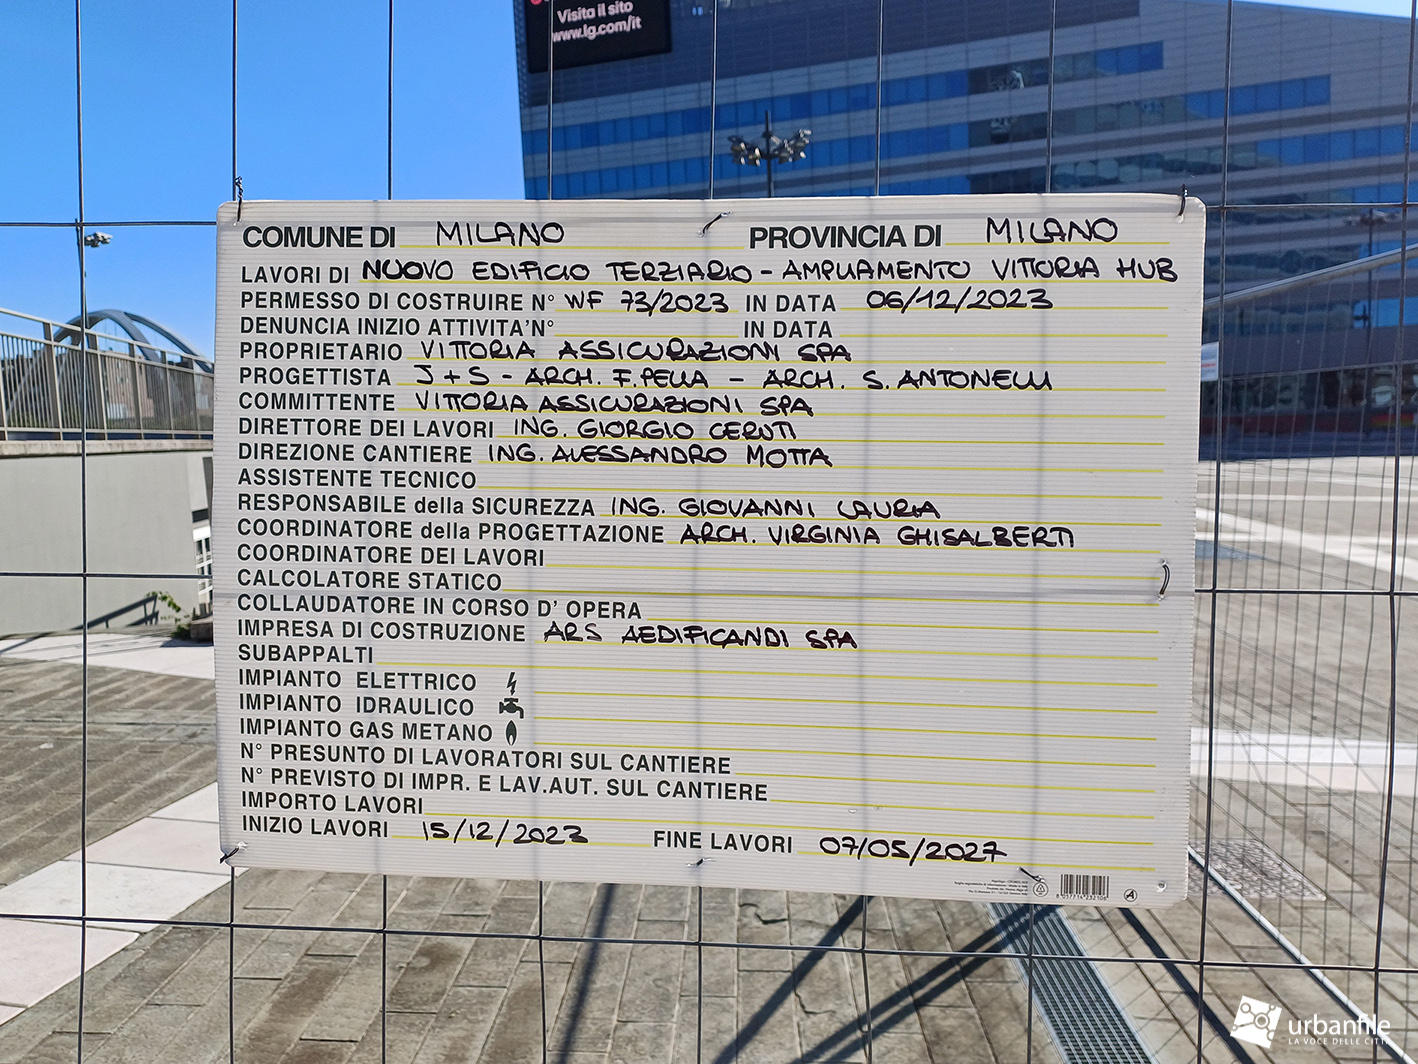 Visita il sito
www.lg.com/it
COMUNE DI MILANO PROVINCIA DI MILANO
LAVORI DI NUOVO EDIFICIO TERZIARIO - AMPLIAMENTO VITTORIA HUB
PERMESSO DI COSTRUIRE N° WF 73/2023 IN DATA 06/12/2023
DENUNCIA INIZIO ATTIVITA'N° IN DATA
PROPRIETARIO VITTORIA ASSICURAZIONI SPA
PROGETTISTA J+S - ARCH. F. PELLA - ARCH. S. ANTONELLI
COMMITTENTE VITTORIA ASSICURAZIONI SPA
DIRETTORE DEI LAVORI ING. GIORGIO CERUTI
DIREZIONE CANTIERE ING. ALESSANDRO MOTTA
ASSISTENTE TECNICO
RESPONSABILE della SICUREZZA ING. GIOVANNI LAURIA
COORDINATORE della PROGETTAZIONE ARCH. VIRGINIA GHISALBERTI
COORDINATORE DEI LAVORI
CALCOLATORE STATICO
COLLAUDATORE IN CORSO D' OPERA
IMPRESA DI COSTRUZIONE ARS AEDIFICANDI SPA
SUBAPPALTI
IMPIANTO ELETTRICO
IMPIANTO IDRAULICO
IMPIANTO GAS METANO
N° PRESUNTO DI LAVORATORI SUL CANTIERE
N° PREVISTO DI IMPR. E LAV.AUT. SUL CANTIERE
IMPORTO LAVORI
INIZIO LAVORI 15/12/2023 FINE LAVORI 07/05/2027
8 057714 232106
urbanfile
LA VOCE DELLE CITTÀ